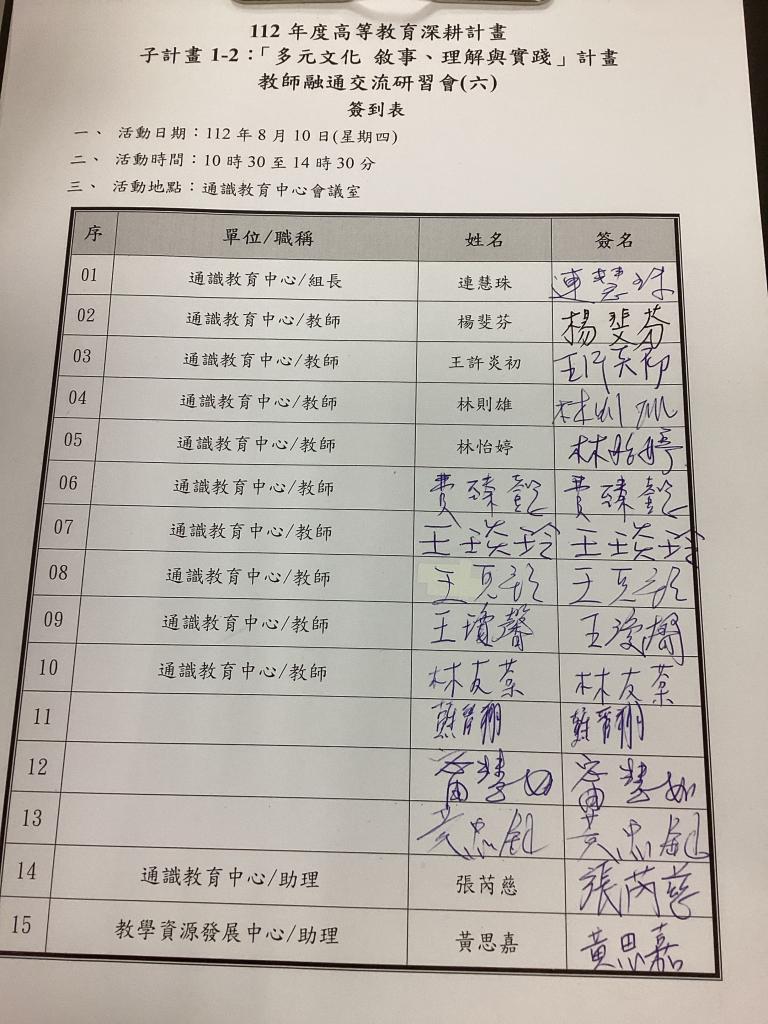 112 年度高等教育深耕計畫
子計畫 1-2：「多元文化 敘事、理解與實踐」計畫
教師融通交流研習會(六)
簽到表
一、 活動日期：112 年 8 月 10 日(星期四)
二、 活動時間：10 時 30 至 14 時 30 分
三、 活動地點：通識教育中心會議室
序 單位/職稱 姓名 簽名
01 通識教育中心/組長 連慧珠 連慧珠
02 通識教育中心/教師 楊斐芬 楊斐芬
03 通識教育中心/教師 王許炎初 王許炎初
04 通識教育中心/教師 林則雄 林則雄
05 通識教育中心/教師 林怡婷 林怡婷
06 通識教育中心/教師 費臻懿 費臻懿
07 通識教育中心/教師 王琰玲 王琰玲
08 通識教育中心/教師 王 王
09 通識教育中心/教師 王瓊馨 王瓊馨
10 通識教育中心/教師 林友 林友
11
12 慧如 慧如
13 黃忠 黃忠
14 通識教育中心/助理 張芮慈 張芮慈
15 教學資源發展中心/助理 黃思嘉 黃思嘉